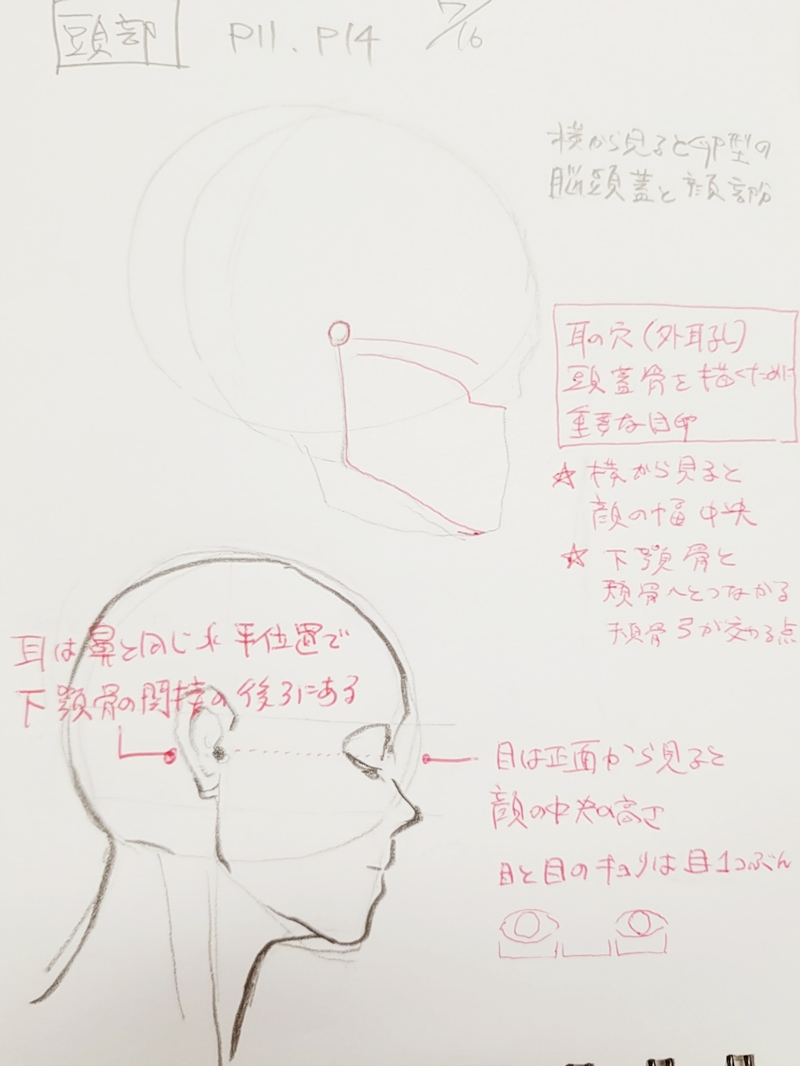 頭部 P11. P14 7/16
横から見ると卵型の
脳頭蓋と顔部
耳の穴(外耳孔)
頭蓋骨を描くために
重要な目印
☆ 横から見ると
顔の幅中央
☆ 下顎骨と
頬骨へとつながる
頬骨弓が交わる点
耳は鼻と同じ水平位置で
下顎骨の関節の後ろにある
目は正面から見ると
顔の中央の高さ
目と目のキョリは目1つぶん